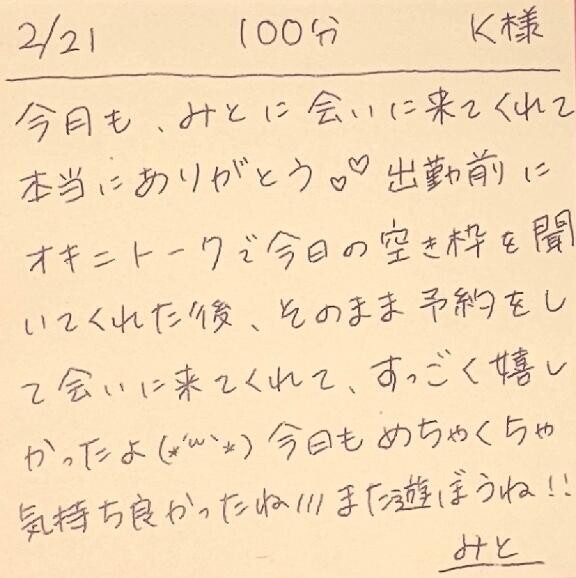 2/21 100分 K様
今日も、みとに会いに来てくれて
本当にありがとう♡♡出勤前に
オキニトークで今日の空き枠を聞
いてくれた後、そのまま予約をし
て会いに来てくれて、すっごく嬉し
かったよ(*´ω`*)今日もめちゃくちゃ
気持ち良かったね///また遊ぼうね!!
みと